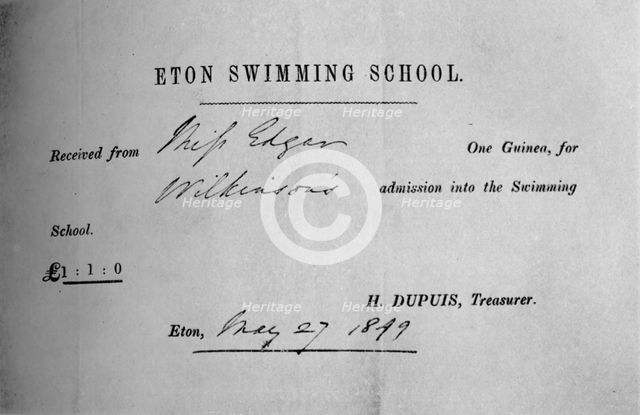 ETON SWIMMING SCHOOL.
Received from Miss Edgar One Guinea, for
Wilkinson's admission into the Swimming
School.
£1 : 1 : 0
H. DUPUIS, Treasurer.
Eton, May 27 1849
Heritage
Heritage
Heritage
Heritage
Heritage
Heritage
Heritage
Heritage
C